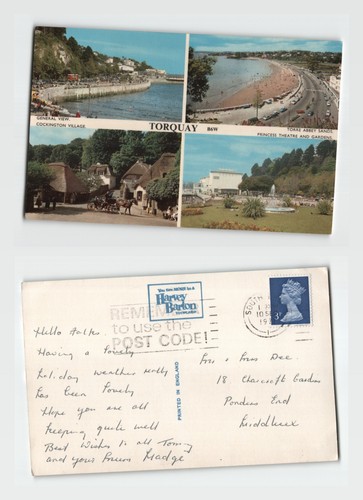 GENERAL VIEW.
COCKINGTON VILLAGE.
TORQUAY
B6W
TORRE ABBEY SANDS.
PRINCESS THEATRE AND GARDENS
You can SENSE it's a
Harvey
Barton
REMEMBER
to use the
POST CODE!
SOUTH
10 SE
19
PRINTED IN ENGLAND
Hello
Having a lovely
holiday weather really
has been lovely
Hope you are all
keeping quite well
Best Wishes to all
and your Madge
Mrs Dee.
18 Gardens
Ponders End
Middlesex